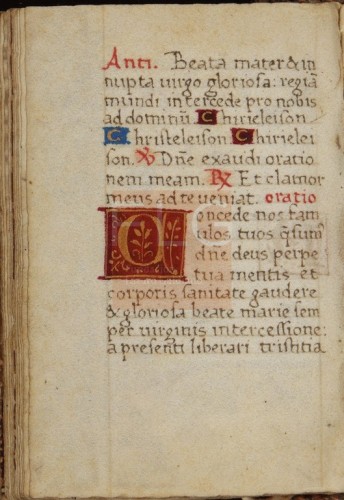 Anti. Beata mater & in
nupta virgo gloriosa: regiā
mundi intercede pro nobis
ad dominū Chirieleison
Christeleison Chirielei
son. ℣ Dn̄e exaudi oratio
nem meam. ℟ Et clamor
meus ad te veniat. oratio
Concede nos fam
ulos tuos q̄sum⁹
dn̄e deus perpe
tua mentis et
corporis sanitate gaudere
& gloriosa beate marie sem
per virginis intercessione:
a presenti liberari tristitia